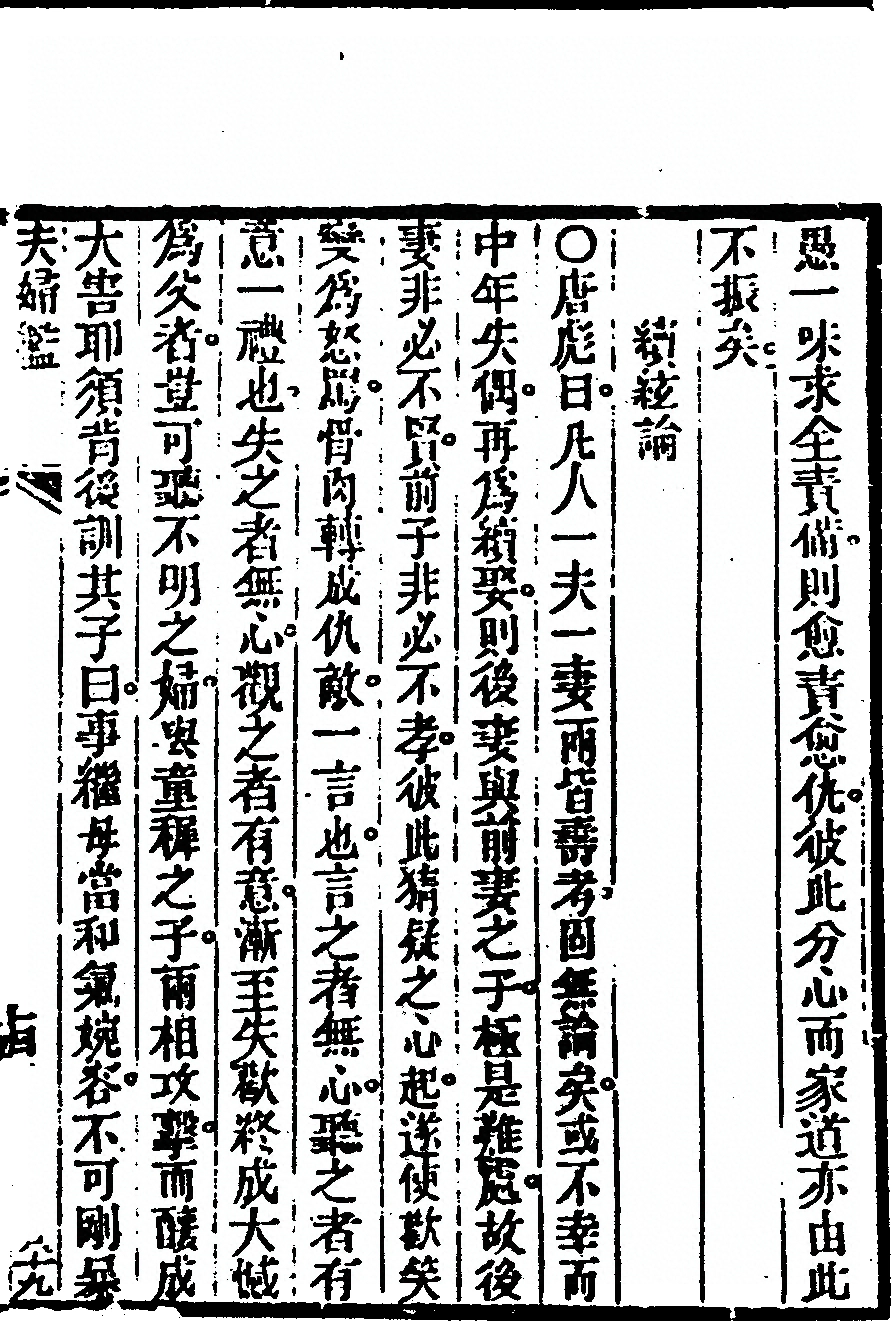 愚一味求全責備則愈責愈仇彼此分心而家道亦由此
不振矣
續絃論
〇唐彪曰凡人一夫一妻兩皆壽考固無論矣或不幸而
中年失偶再為續娶則後妻與前妻之子極是難處故後
妻非必不賢前子非必不孝彼此猜疑之心起遂使歡笑
變為怒罵骨肉轉成仇敵一言也言之者無心聽之者有
意一禮也失之者無心觀之者有意漸至失歡終成大憾
為父者豈可聽不明之婦與童穉之子兩相攻擊而釀成
大害耶須背後訓其子曰事繼母當和氣婉容不可剛暴
夫婦鑑
十九